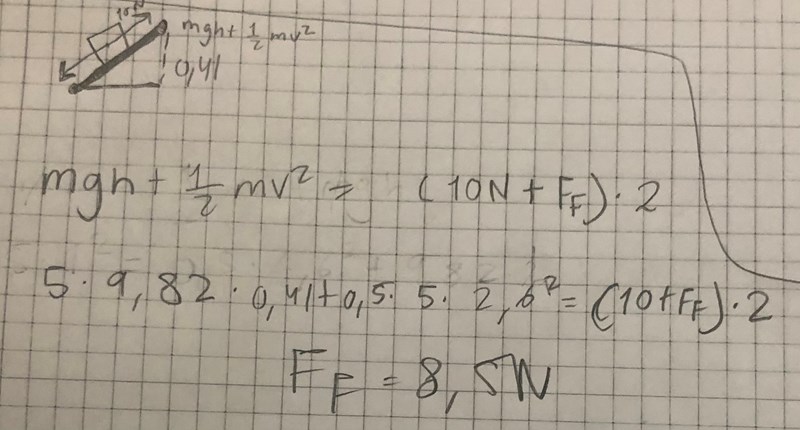 10N
mgh + 1/2 mv²
0,41
mgh + 1/2 mv² = (10N + F_F) · 2
5 · 9,82 · 0,41 + 0,5 · 5 · 2,6² = (10 + F_F) · 2
F_F = 8,5N